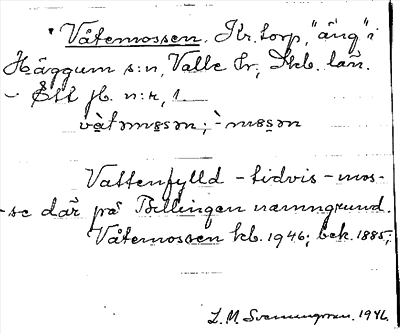 Våtemossen. Kr. torp, "äng" i
Häggum s:n, Valle hr, Skb. län.
- Ett jb. n:r, 1
våtəmɷsən; - mɷsən
Vattenfylld - tidvis - mos-
-se där på Billingen namngrund.
Våtemossen kb. 1946; bek. 1885;
L. M. Svenungsson. 1946.